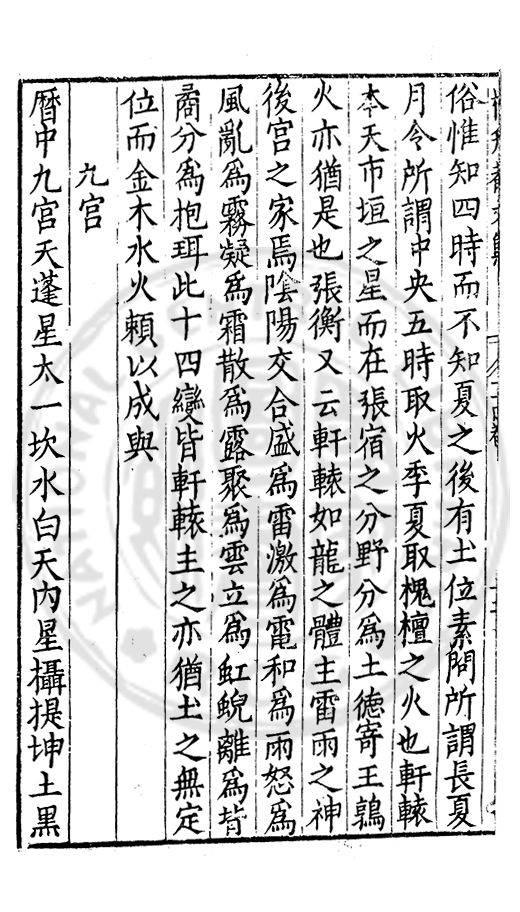 俗惟知四時而不知夏之後有土位素問所謂長夏
月令所謂中央五時取火季夏取槐檀之火也軒轅
本天市垣之星而在張宿之分野分為土德寄王鶉
火亦猶是也張衡又云軒轅如龍之體主雷雨之神
後宮之家焉陰陽交合盛為雷激為電和為雨怒為
風亂為霧凝為霜散為露聚為雲立為虹蜺離為背
矞分為抱珥此十四變皆軒轅主之亦猶土之無定
位而金木水火頼以成與
九宮
曆中九宮天蓬星太一坎水白天内星攝提坤土黑